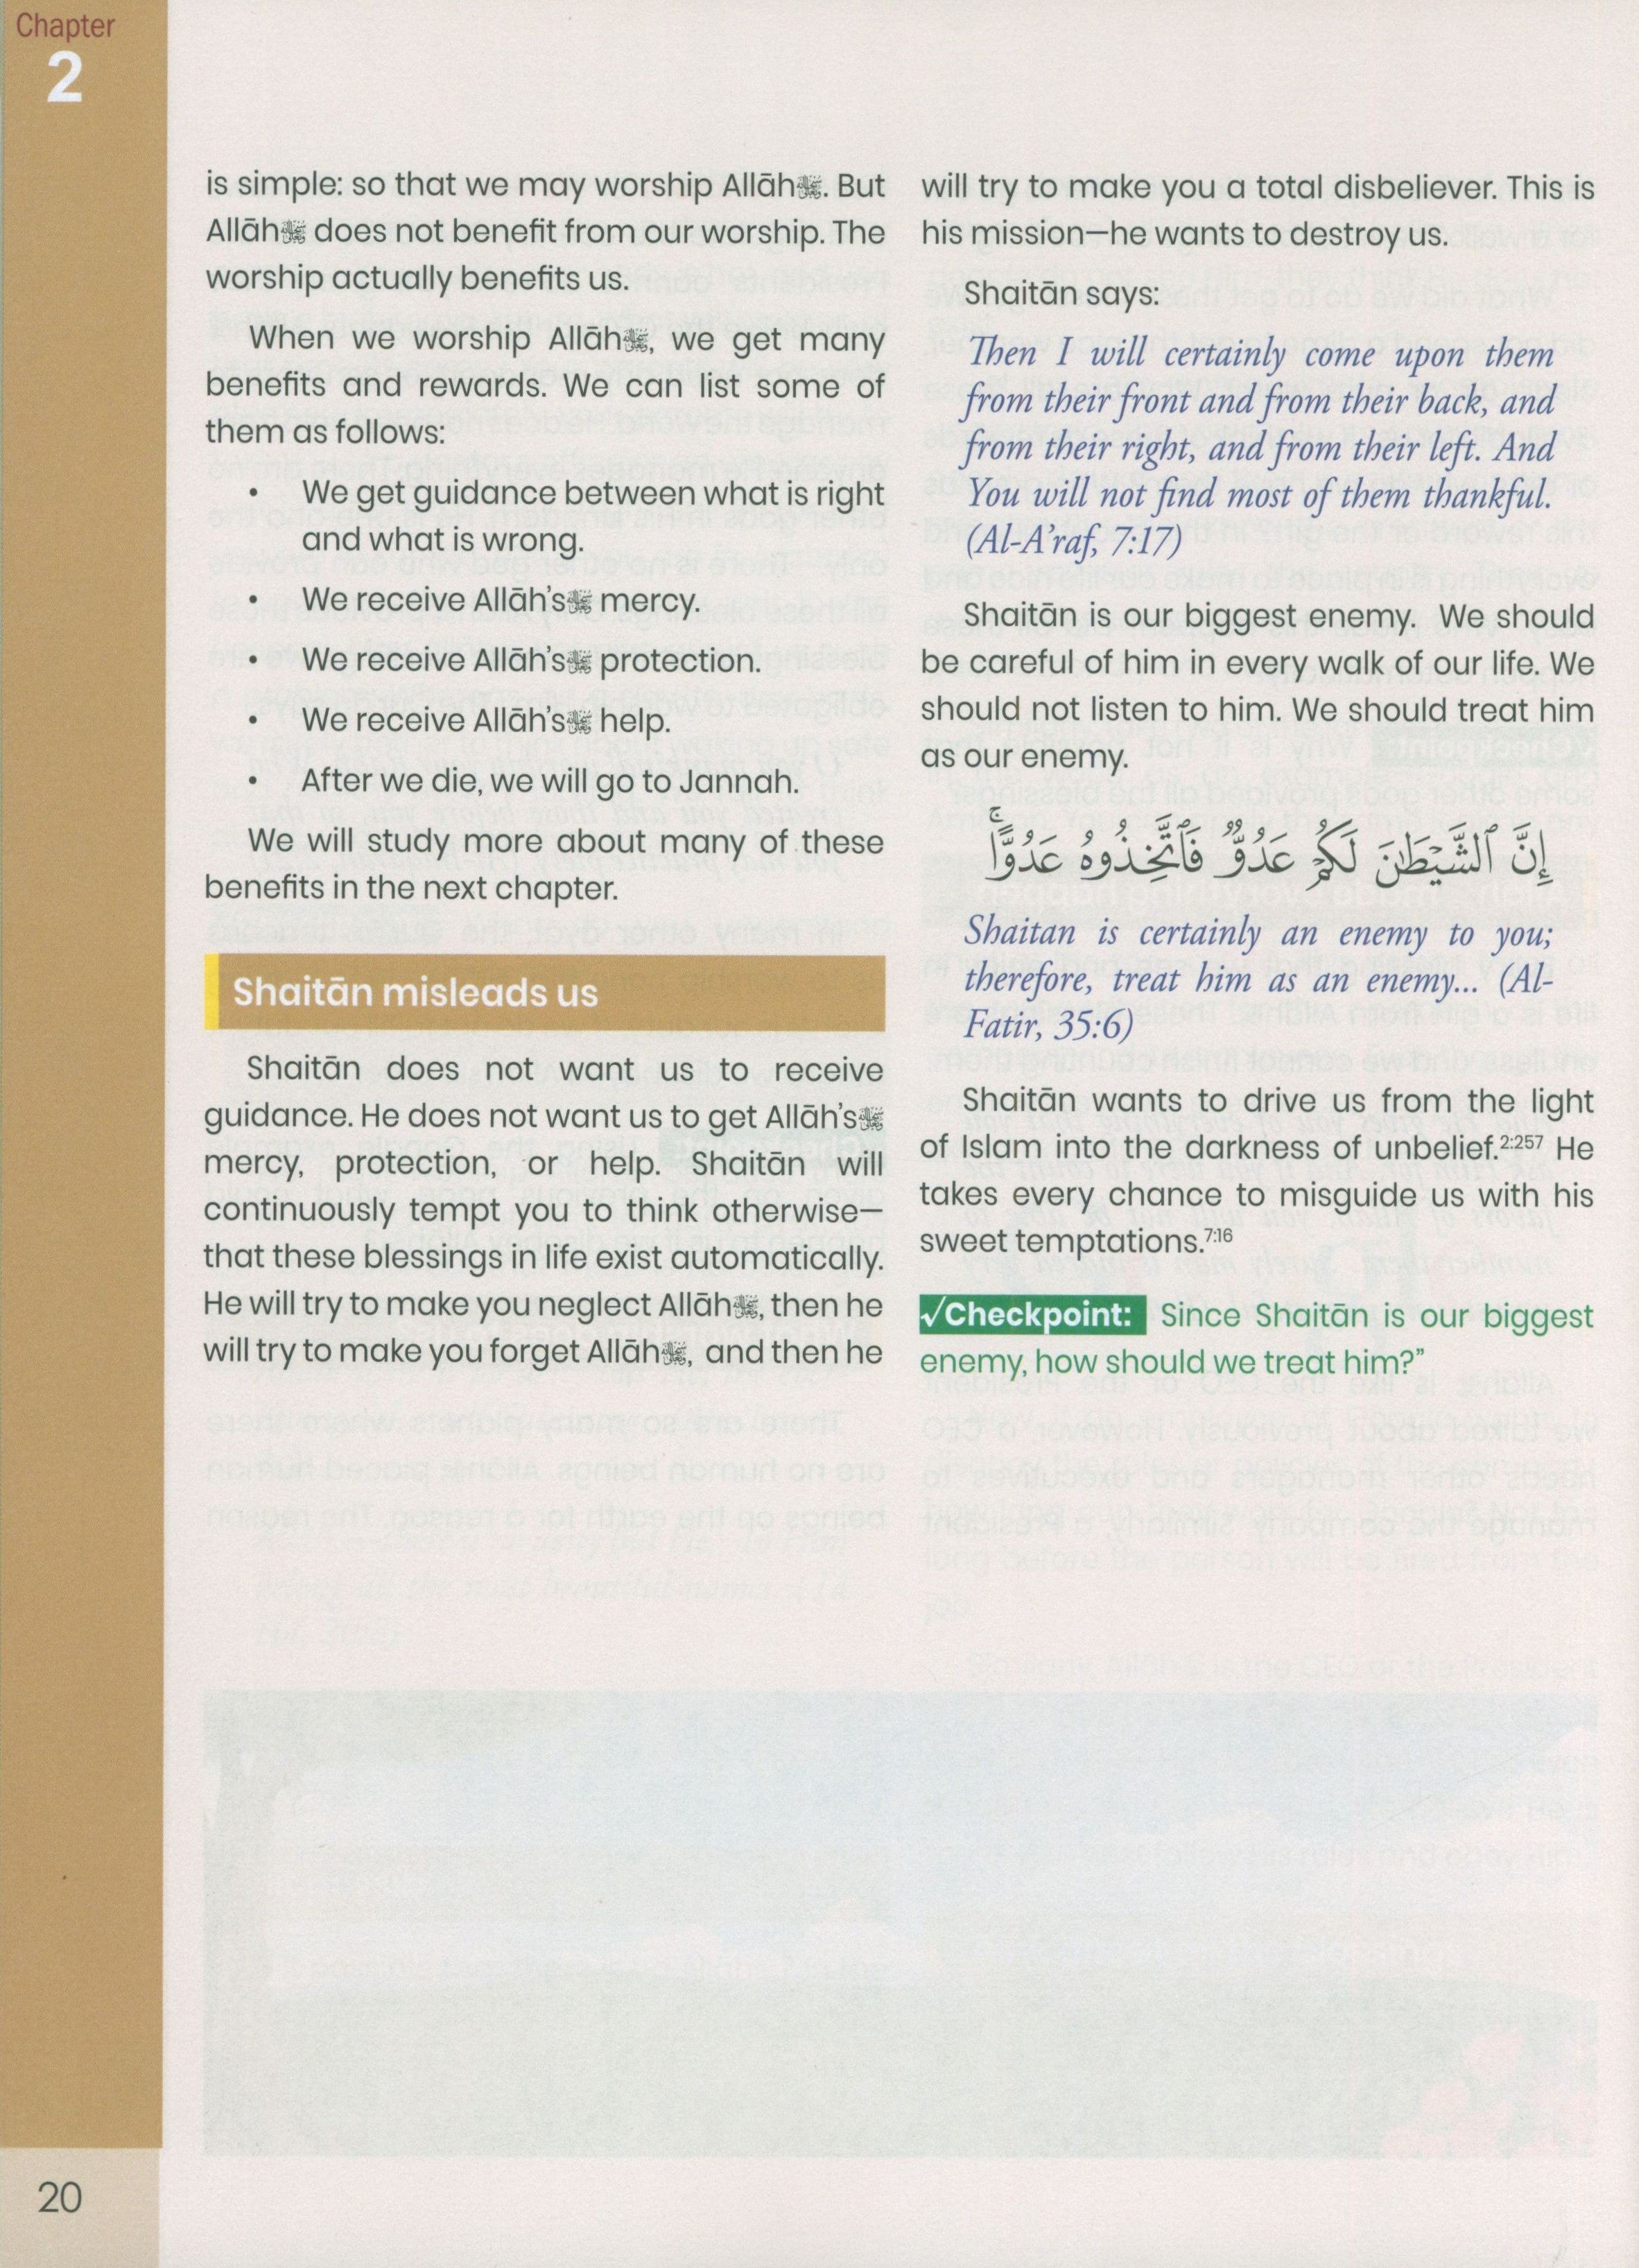 Chapter
2
is simple: so that we may worship Allāhﷻ. But
Allāhﷻ does not benefit from our worship. The
worship actually benefits us.
When we worship Allāhﷻ, we get many
benefits and rewards. We can list some of
them as follows:
• We get guidance between what is right
and what is wrong.
• We receive Allāh'sﷻ mercy.
• We receive Allāh'sﷻ protection.
• We receive Allāh'sﷻ help.
• After we die, we will go to Jannah.
We will study more about many of these
benefits in the next chapter.
Shaitān misleads us
Shaitān does not want us to receive
guidance. He does not want us to get Allāh'sﷻ
mercy, protection, or help. Shaitān will
continuously tempt you to think otherwise—
that these blessings in life exist automatically.
He will try to make you neglect Allāhﷻ, then he
will try to make you forget Allāhﷻ, and then he
will try to make you a total disbeliever. This is
his mission—he wants to destroy us.
Shaitān says:
Then I will certainly come upon them
from their front and from their back, and
from their right, and from their left. And
You will not find most of them thankful.
(Al-A'raf, 7:17)
Shaitān is our biggest enemy. We should
be careful of him in every walk of our life. We
should not listen to him. We should treat him
as our enemy.
إِنَّ ٱلشَّيْطَٰنَ لَكُمْ عَدُوٌّ فَٱتَّخِذُوهُ عَدُوًّا ۚ
Shaitan is certainly an enemy to you;
therefore, treat him as an enemy... (Al-
Fatir, 35:6)
Shaitān wants to drive us from the light
of Islam into the darkness of unbelief.2:257 He
takes every chance to misguide us with his
sweet temptations.7:16
√Checkpoint: Since Shaitān is our biggest
enemy, how should we treat him?”
20